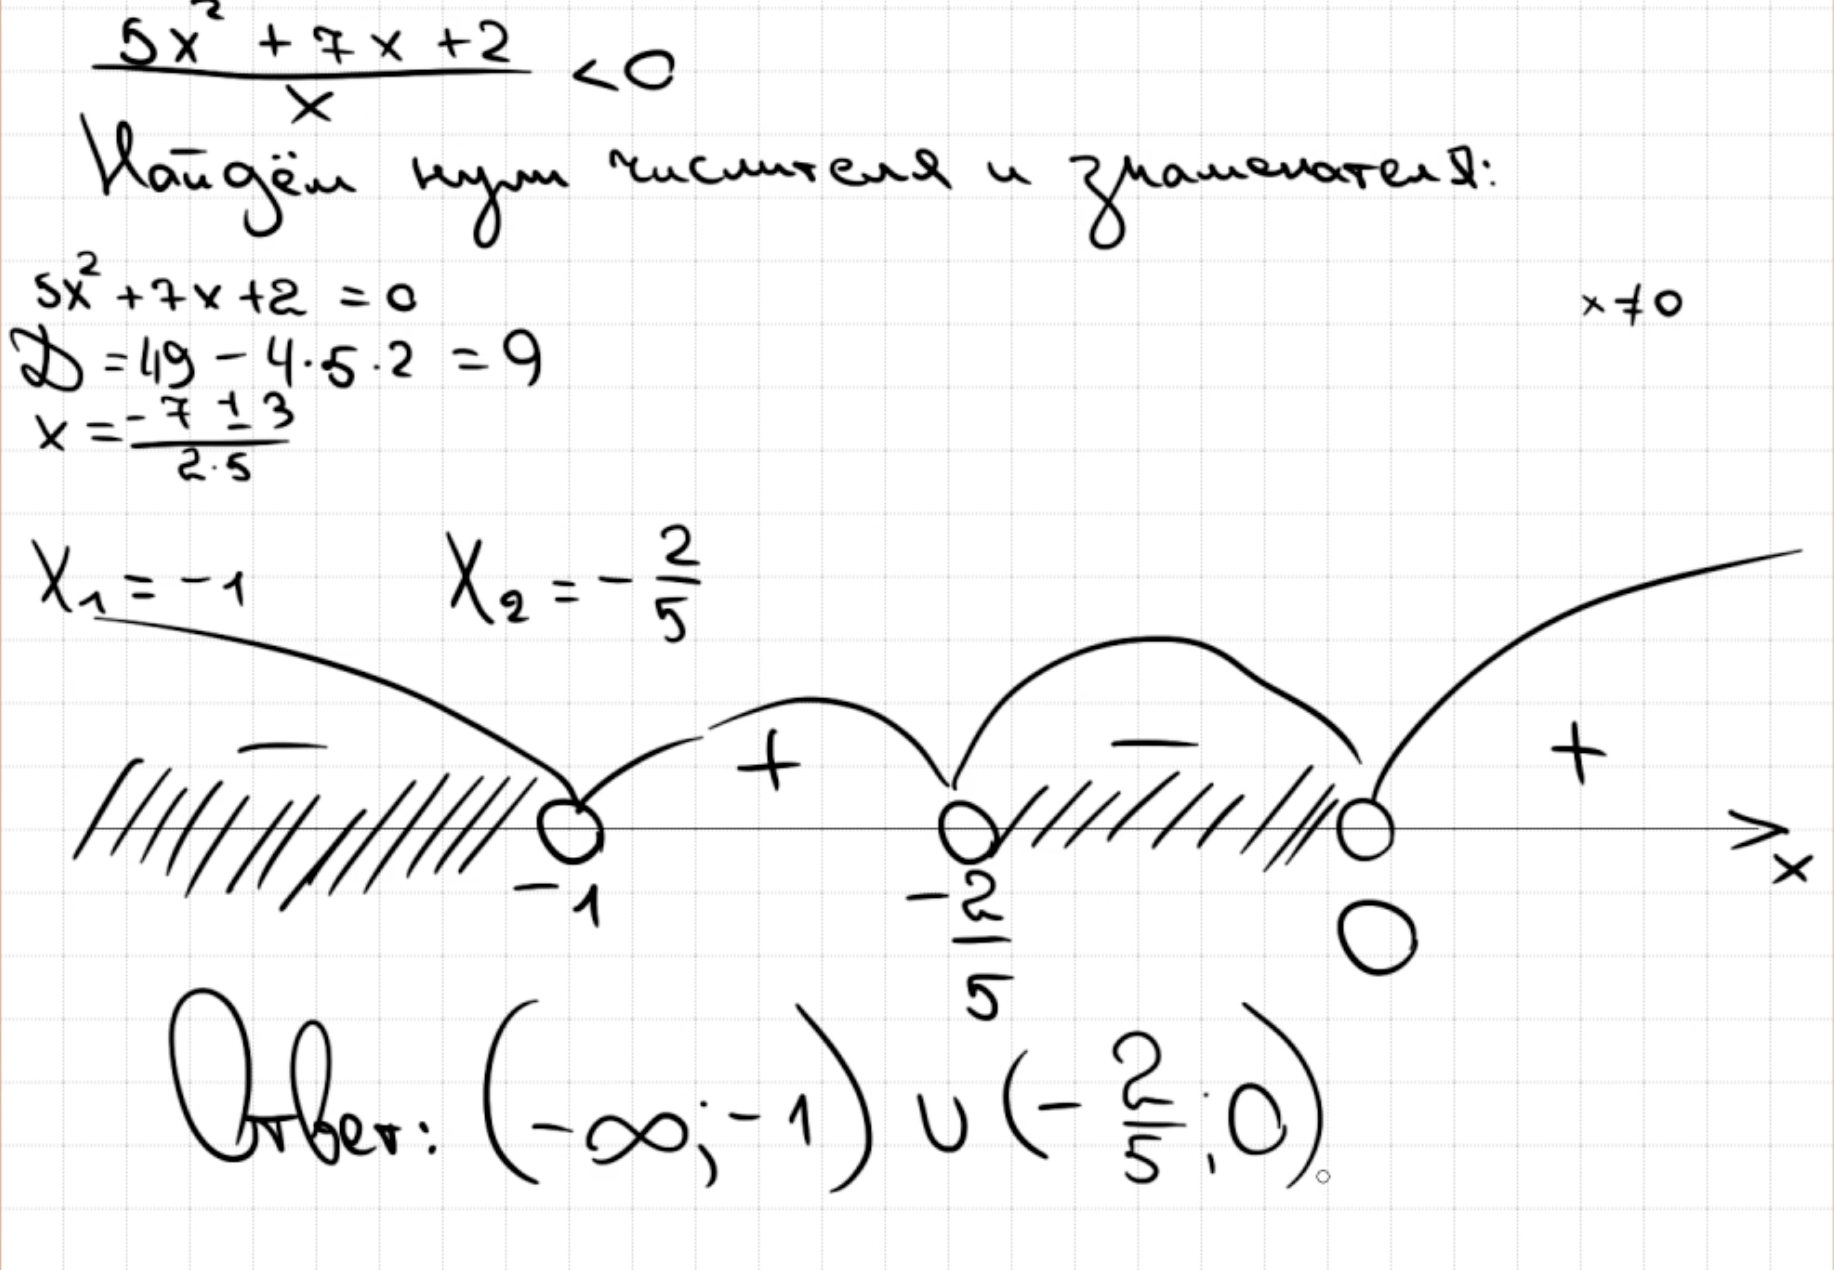 5x² + 7x + 2
───────── < 0
x
Найдём нули числителя и знаменателя:
5x² + 7x + 2 = 0
x ≠ 0
D = 49 - 4·5·2 = 9
x = (-7 ± 3)/(2·5)
X₁ = -1 X₂ = -2/5
- + - +
-1 -2/5 0 x
Ответ: (-∞; -1) ∪ (-2/5; 0).